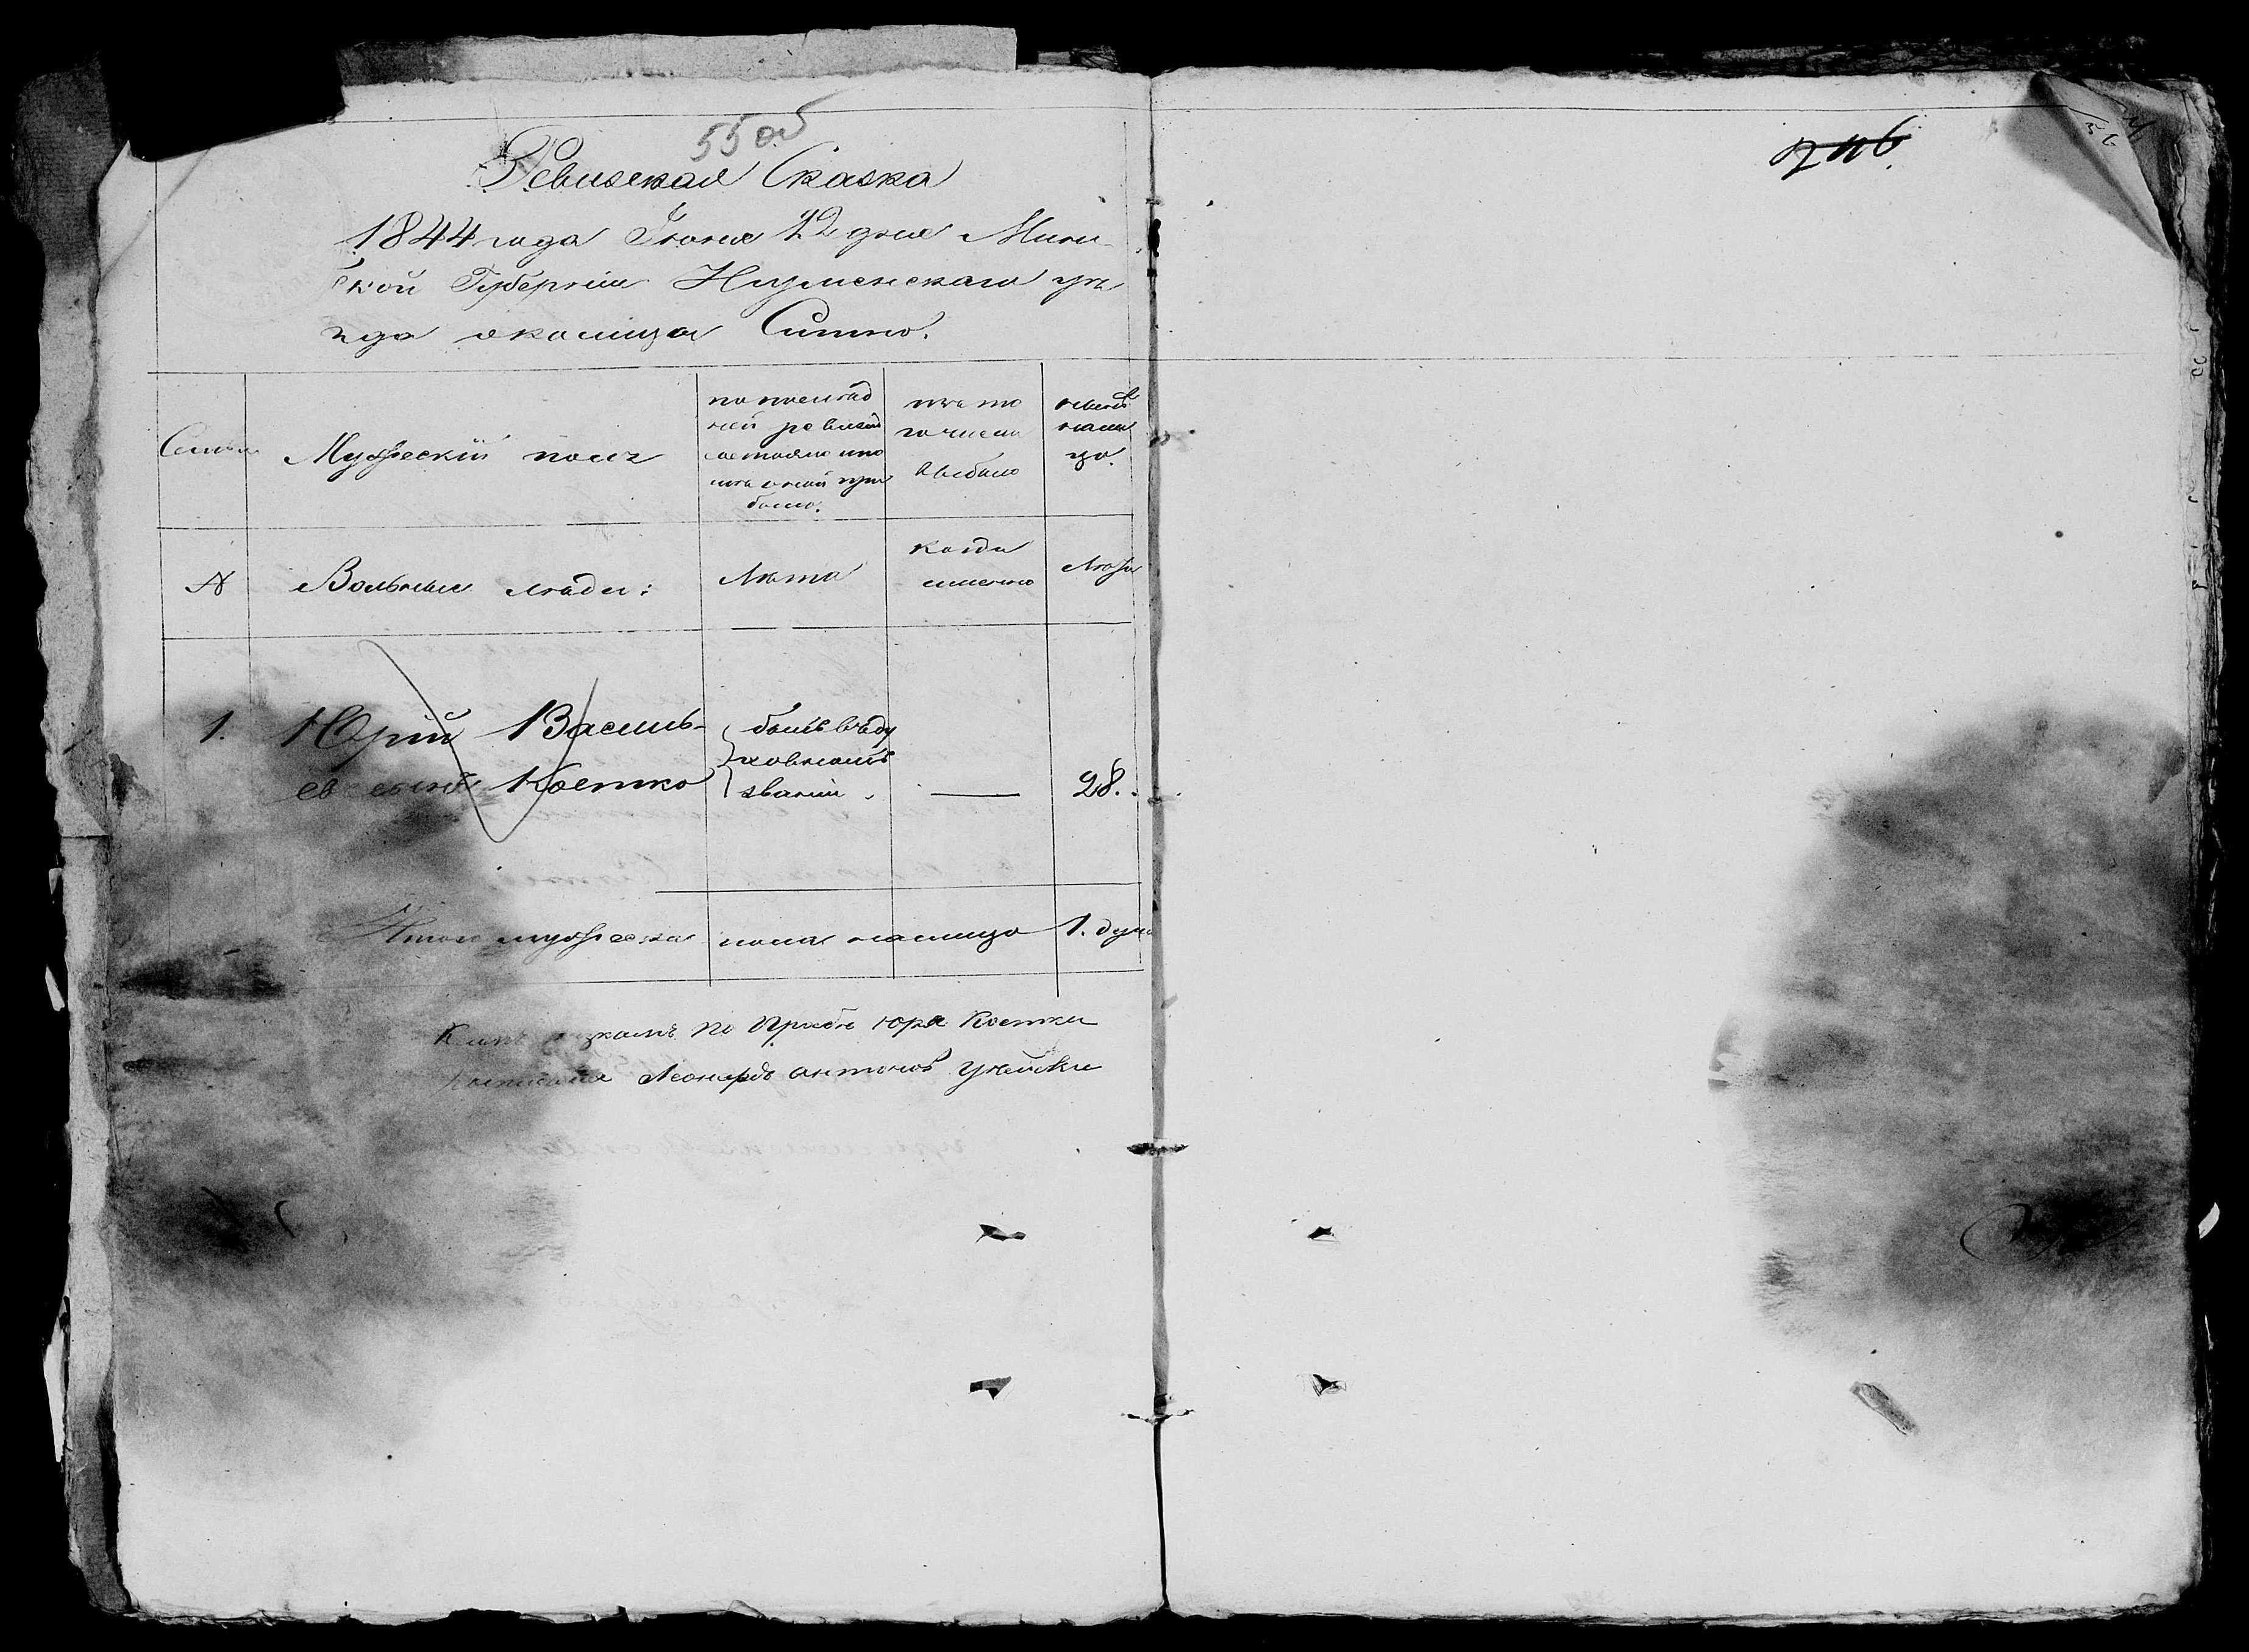 55 об
Ревизская Сказка
1844 года Іюня 22 дня Минс-
кой Губерніи Игуменскаго уѣ
зда околицы Ситно.
Семьи
Мужескій полъ
по послѣд
ней ревизіи
состояло и по
слѣ оной при
было.
изъ то
го числа
выбыло
нынѣ въ
нали
цо.
№
Вольные люди:
Лѣта
когда
именно
Лѣта
1. Юрій Василь-
евъ сынъ Костко
былъ въ ду
ховномъ
званіи.
28.
Итого мужеска пола налицо 1. душа
по Прозбѣ Юря Костки
Леонардъ Антоновъ
746.
56